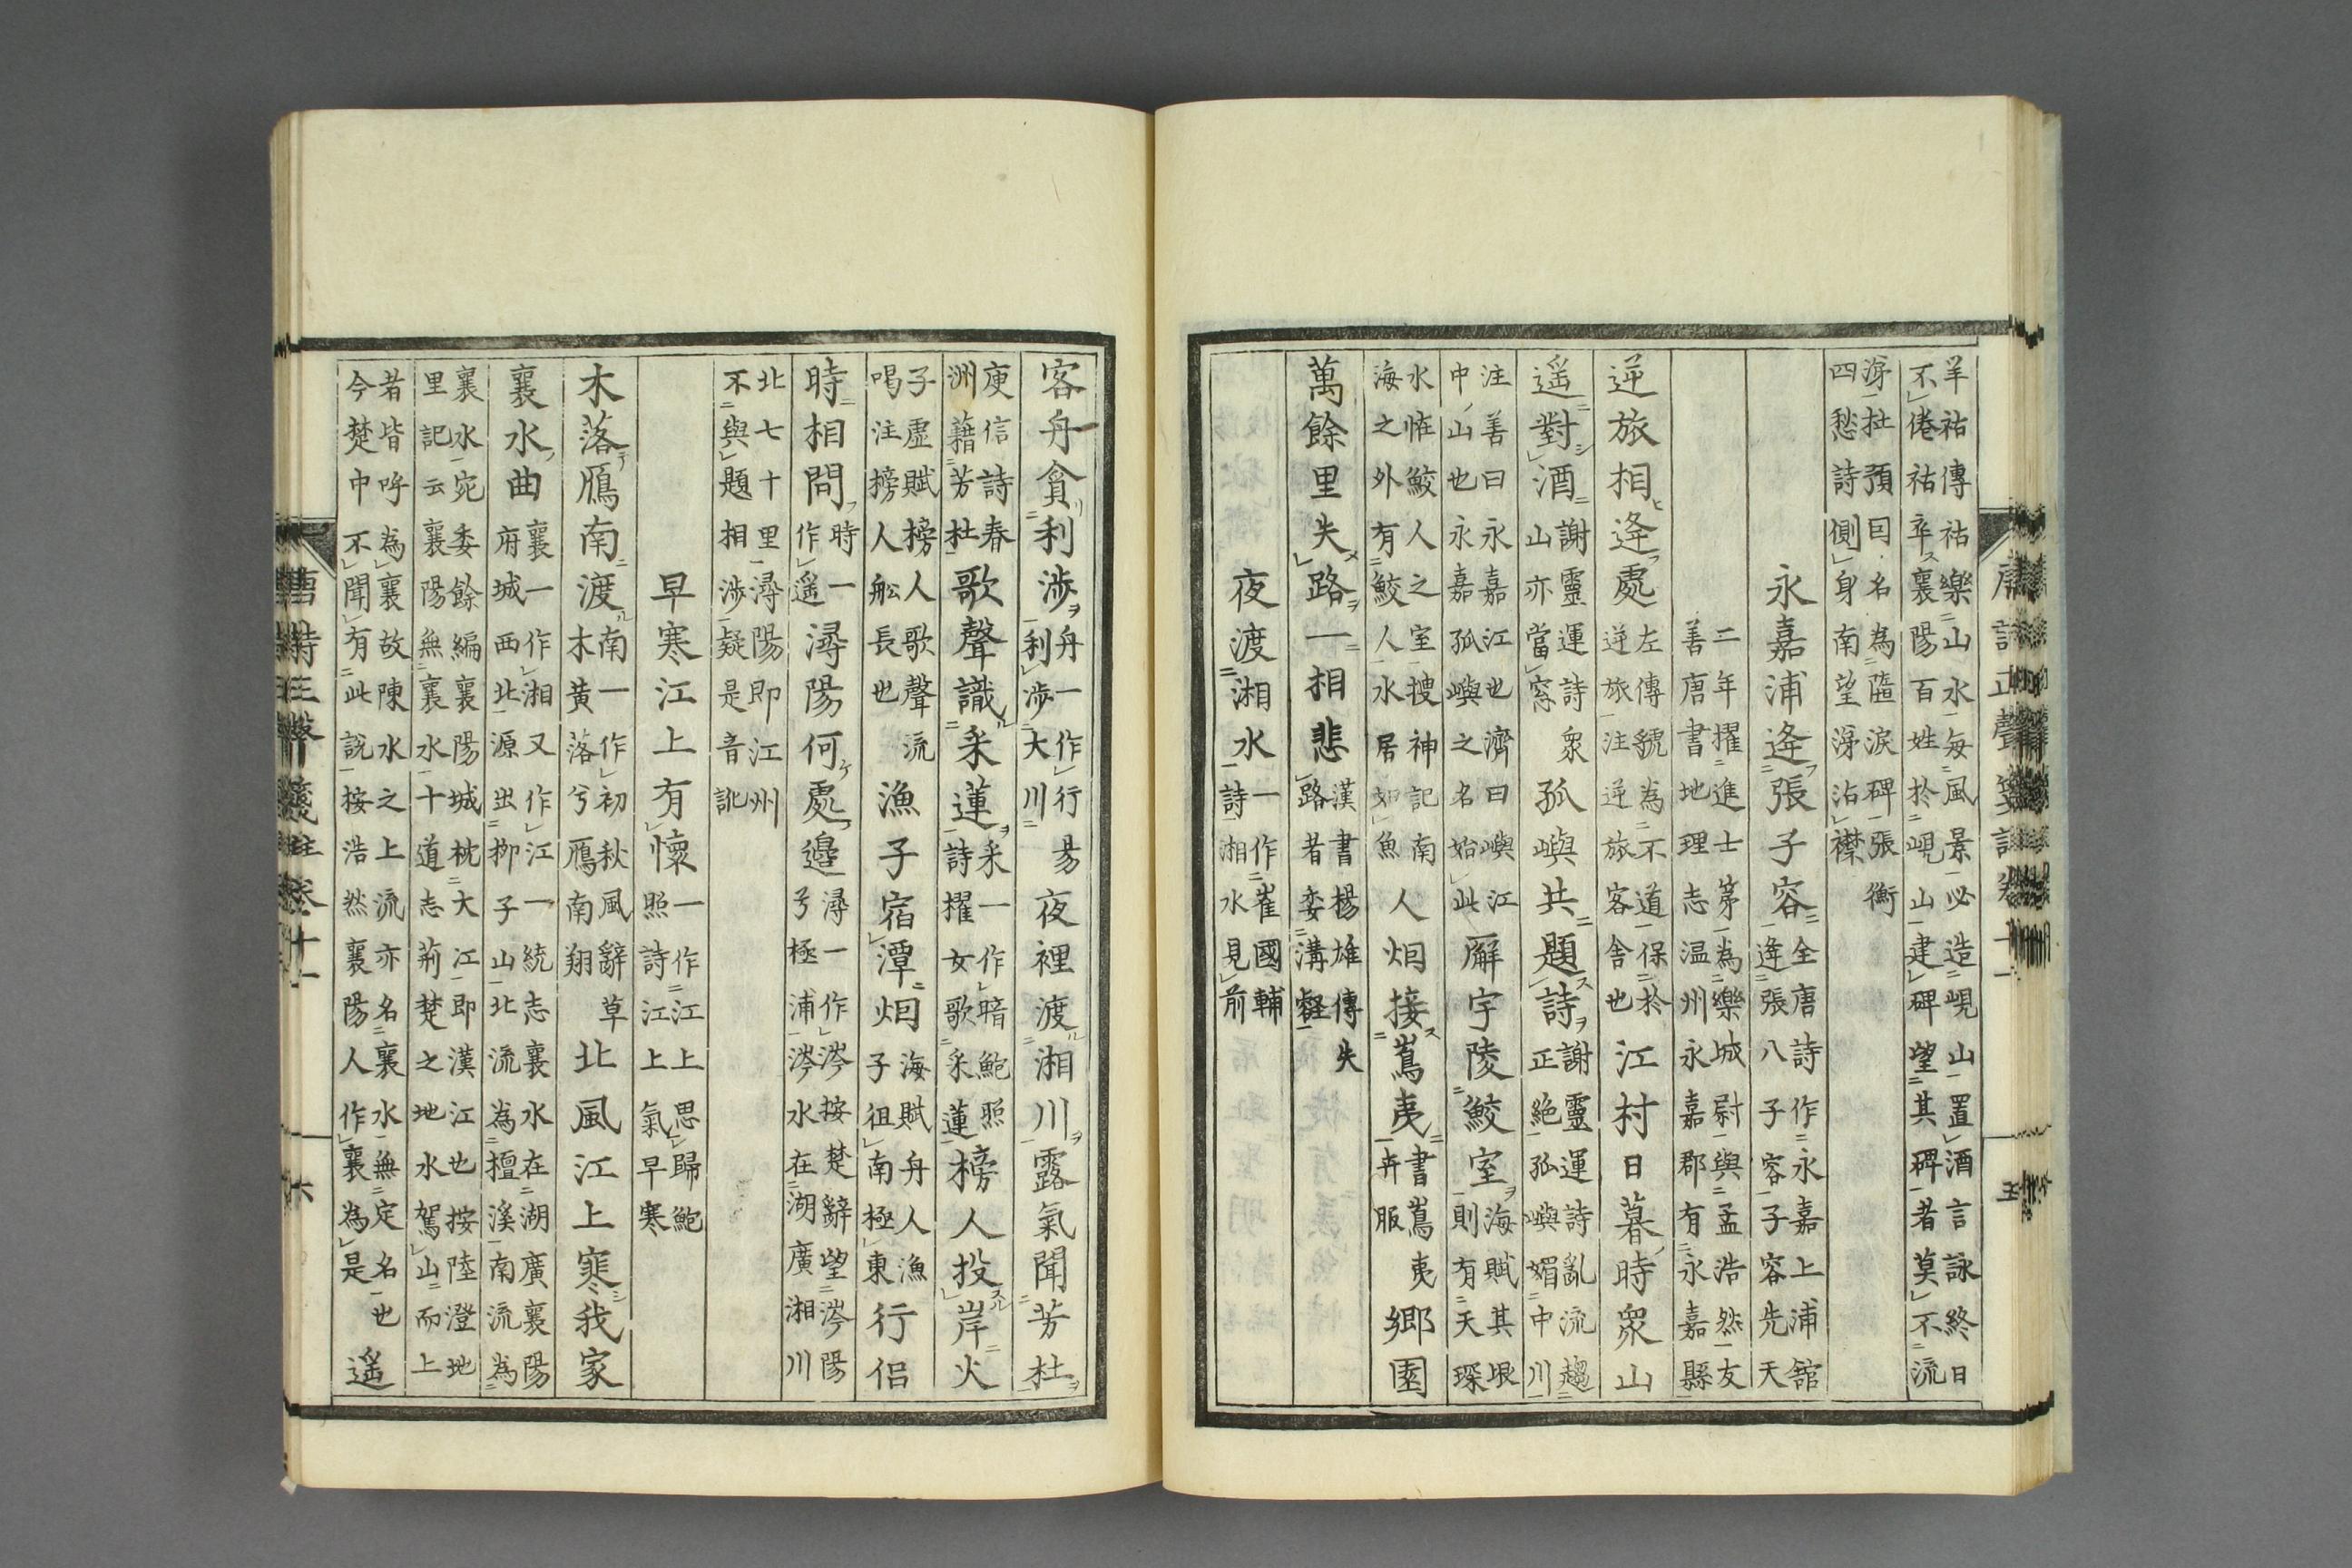 羊祜傳祜樂山水每風景必造峴山置酒言詠終日
不倦祜卒襄陽百姓於峴山建碑望其碑者莫不流
涕杜預因名為墮淚碑張衡
四愁詩側身南望涕沾襟
永嘉浦逢張子容
全唐詩作永嘉上浦舘
逄張八子容子容先天
二年擢進士第為樂城尉與孟浩然友
善唐書地理志温州永嘉郡有永嘉縣
逆旅相逢處
左傳虢為不道保於
逆旅注逆旅客舎也
江村日暮時衆山
遥對酒
謝靈運詩衆
山亦當窓
孤嶼共題詩
謝靈運詩亂流趨
正絶孤嶼媚中川
注善曰永嘉江也濟曰嶼江
中山也永嘉孤嶼之名始此
廨宇陵鮫室
海賦其垠
則有天琛
水恠鮫人之室搜神記南
海之外有鮫人水居如魚
人烟接嶌夷
書嶌夷
卉服
鄉園
萬餘里失路一相悲
漢書楊雄傳失
路者委溝壑
夜渡湘水
一作崔國輔
詩湘水見前
唐詩正聲箋註卷十一
五
客舟貪利渉
舟一作行易
利渉大川
夜裡渡湘川露氣聞芳杜
庾信詩春
洲藉芳杜
歌聲識采蓮
采一作暗鮑照
詩擢女歌采蓮
榜人投岸火
子虛賦榜人歌聲流
喝注榜人舩長也
漁子宿潭烟
海賦舟人漁
子徂南極東
行侣
時相問
時一
作遥
潯陽何處邉
潯一作涔按楚辭望涔陽
兮極浦涔水在湖廣湘川
北七十里潯陽即江州
不與題相渉疑是音訛
早寒江上有懷
一作江上思歸鮑
照詩江上氣早寒
木落鴈南渡
南一作初秋風辭草
木黄落兮鴈南翔
北風江上寒我家
襄水曲
襄一作湘又作江一統志襄水在湖廣襄陽
府城西北源出柳子山北流為檀溪南流為
襄水宛委餘編襄陽城枕大江即漢江也按陸澄地
里記云襄陽無襄水十道志荊楚之地水駕山而上
者皆呼為襄故陳水之上流亦名襄水無定名也
今楚中不聞有此説按浩然襄陽人作襄為是
遥
唐詩正聲箋註卷十一
六